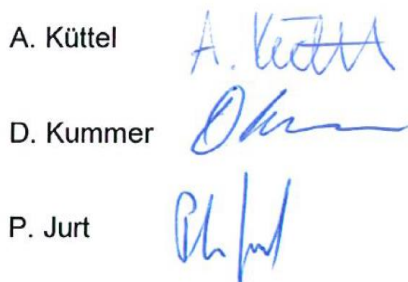 A. Küttel A. Küttel
D. Kummer
P. Jurt